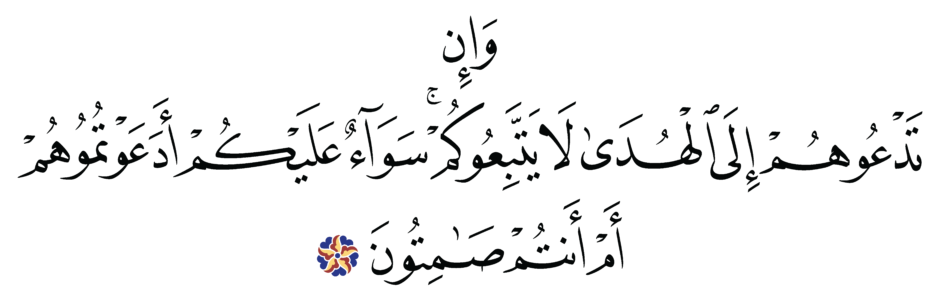 وَإِن
تَدْعُوهُمْ إِلَى ٱلْهُدَىٰ لَا يَتَّبِعُوكُمْ ۚ سَوَآءٌ عَلَيْكُمْ أَدَعَوْتُمُوهُمْ
أَمْ أَنتُمْ صَـٰمِتُونَ